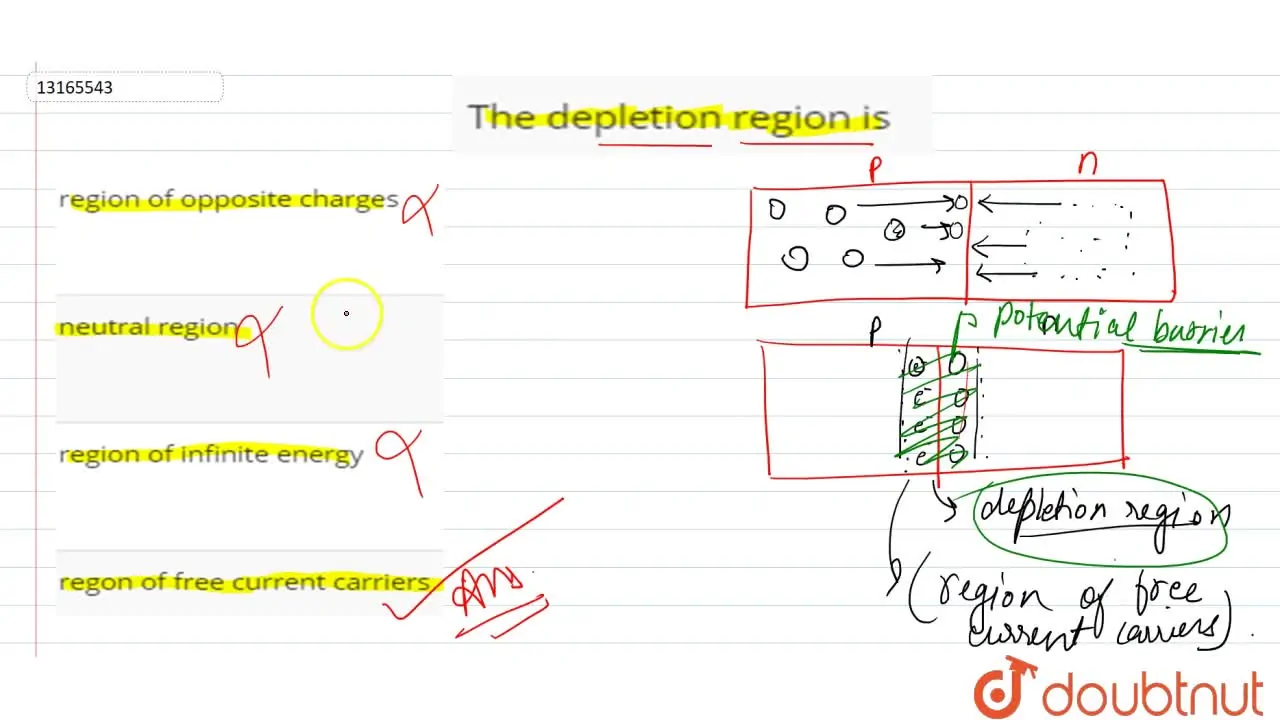 13165543
The depletion region is
region of opposite charges
neutral region
region of infinite energy
regon of free current carriers
Ans.
P n
potential barrier
P
e
e
e
depletion region
(region of free
current carriers).
doubtnut